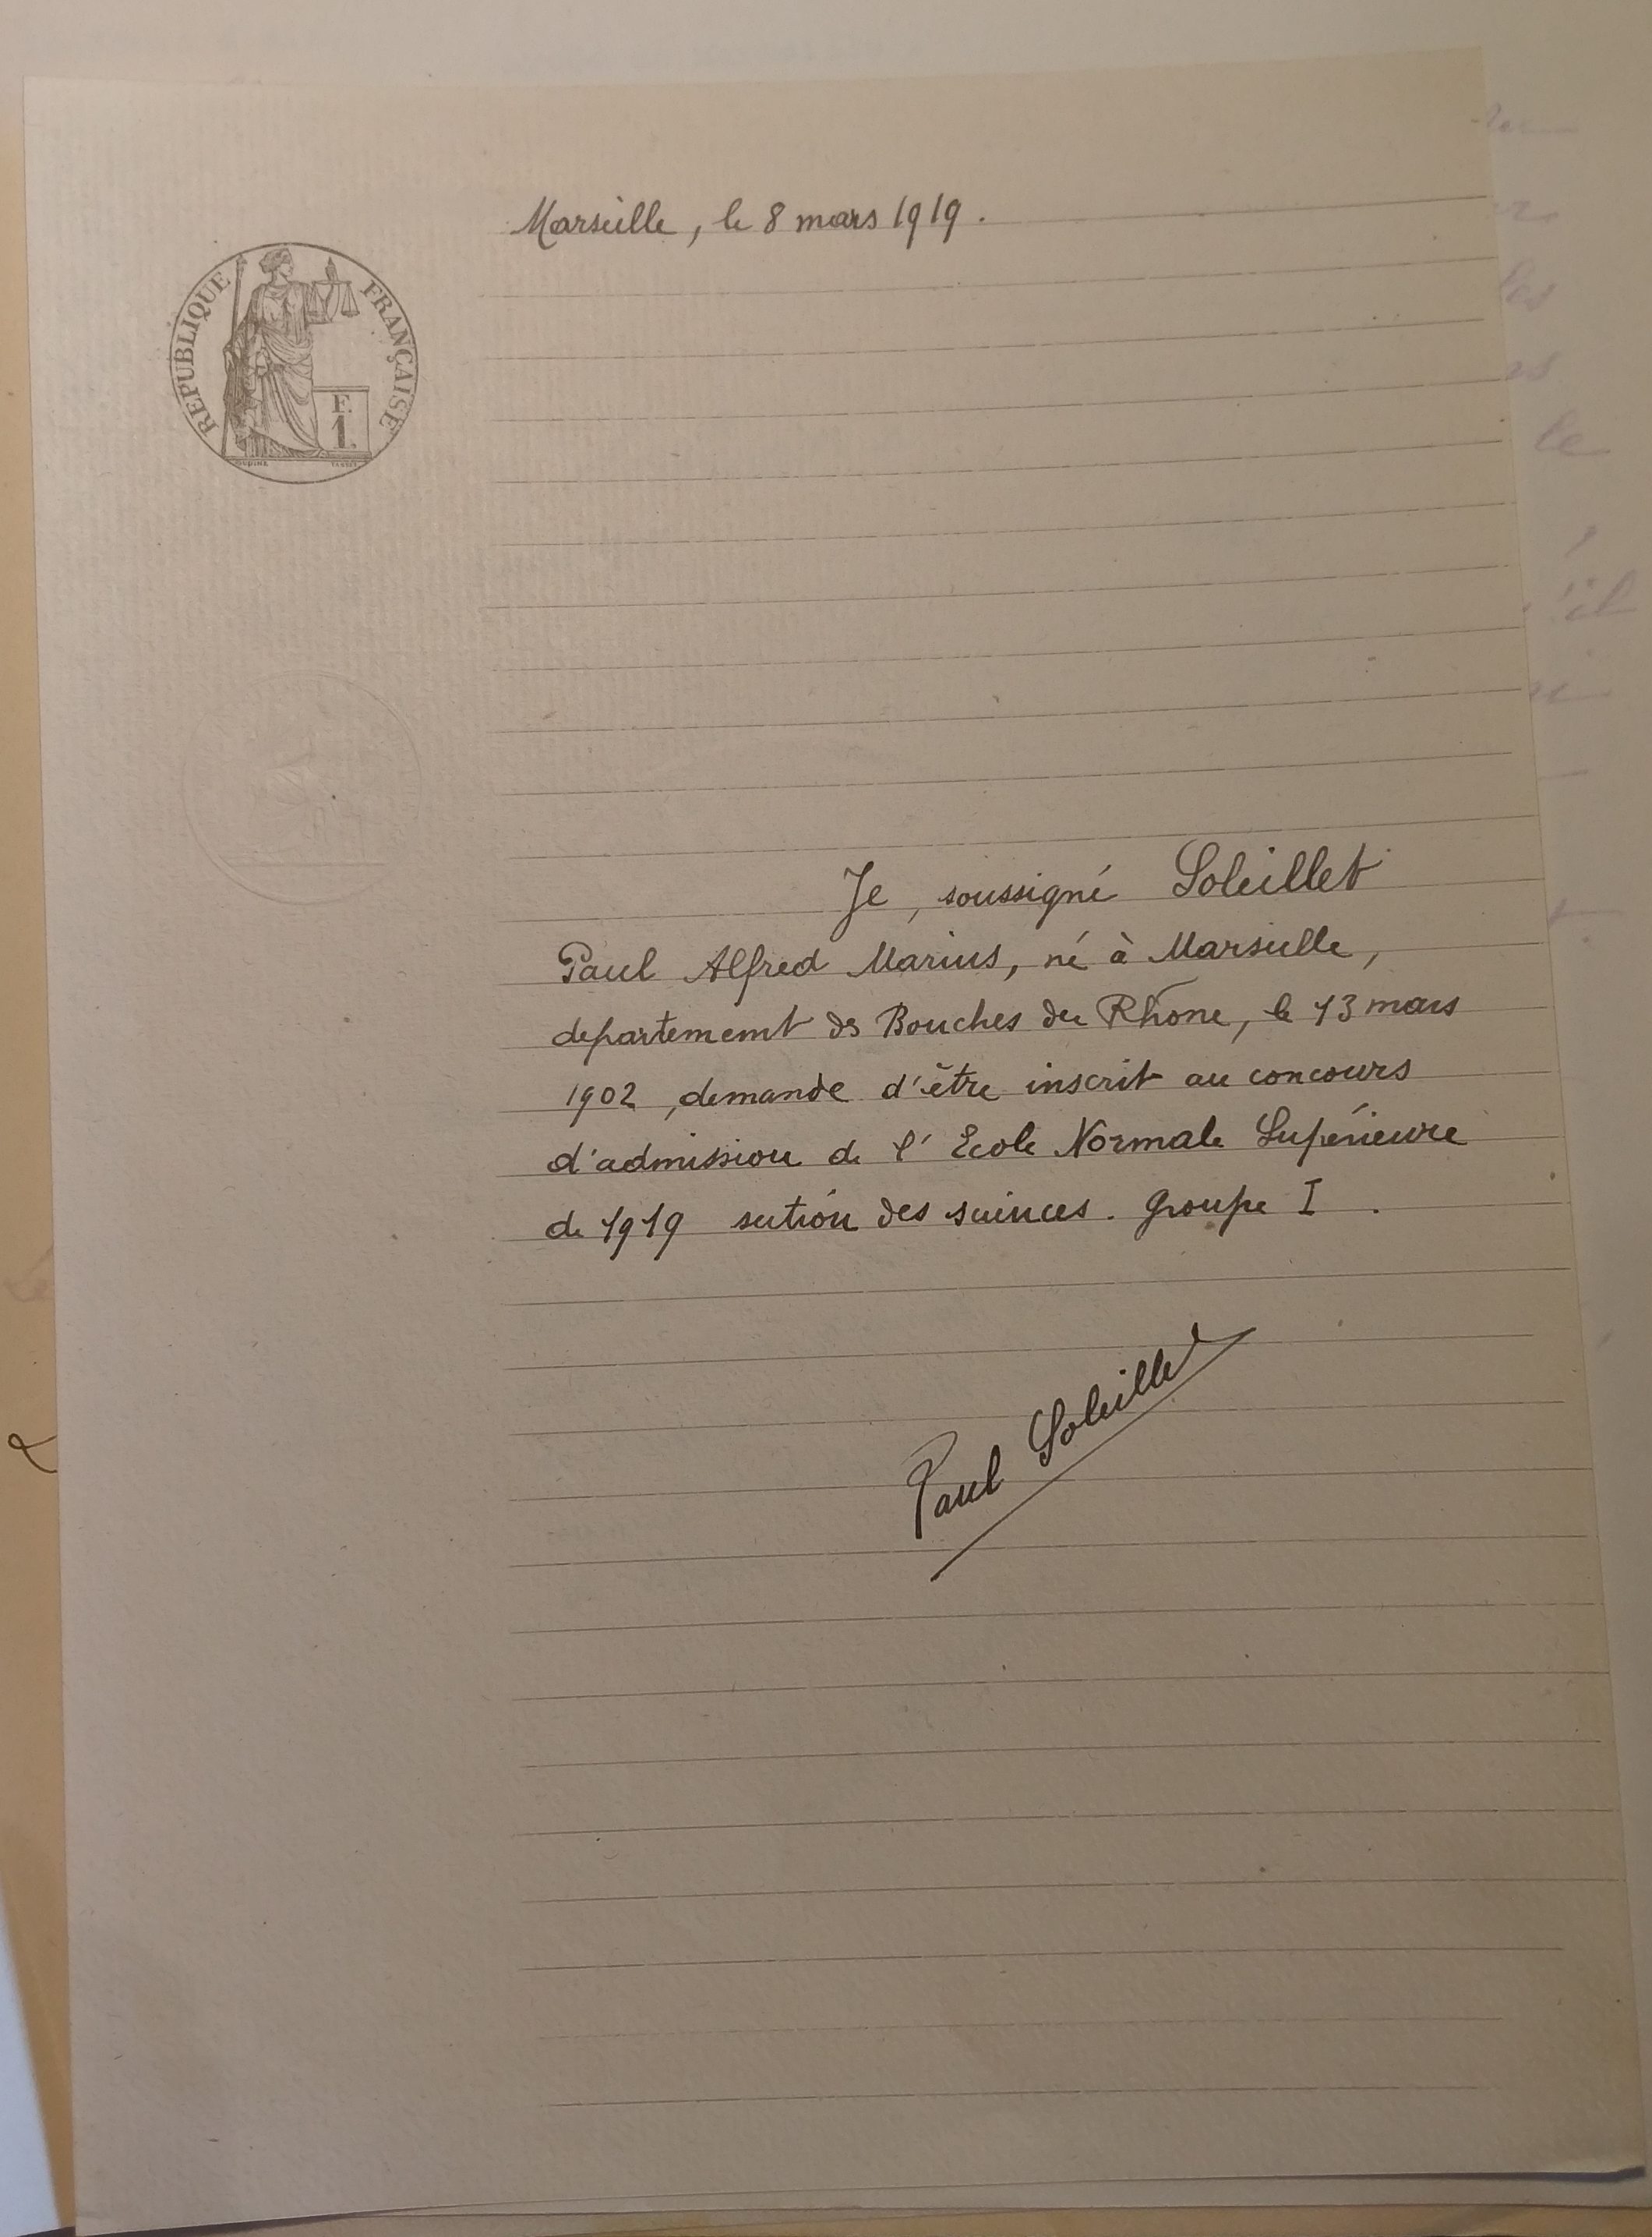 Marseille, le 8 mars 1919.
REPUBLIQUE FRANÇAISE
F.
1.
Je, soussigné Soleillet
Paul Alfred Marius, né à Marseille,
departement des Bouches du Rhône, le 13 mars
1902, demande d'être inscrit au concours
d'admission de l'Ecole Normale Supérieure
de 1919 section des sciences. Groupe I.
Paul Soleillet